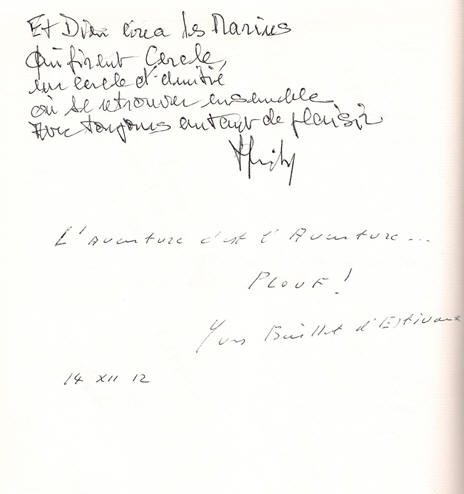 Et Dieu créa les Marins
Qui firent Cercle,
un cercle d'amitié
où se retrouver ensemble
avec toujours autant de plaisir
L'Aventure c'est l'Aventure...
PLOUF!
Yves d'Estivaux
14 XII 12